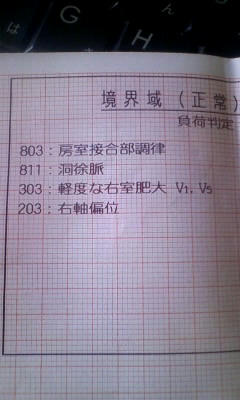 は
G
H
ん
境界域（正常）
負荷判定
803：房室接合部調律
811：洞徐脈
303：軽度な右室肥大 V₁, V₅
203：右軸偏位